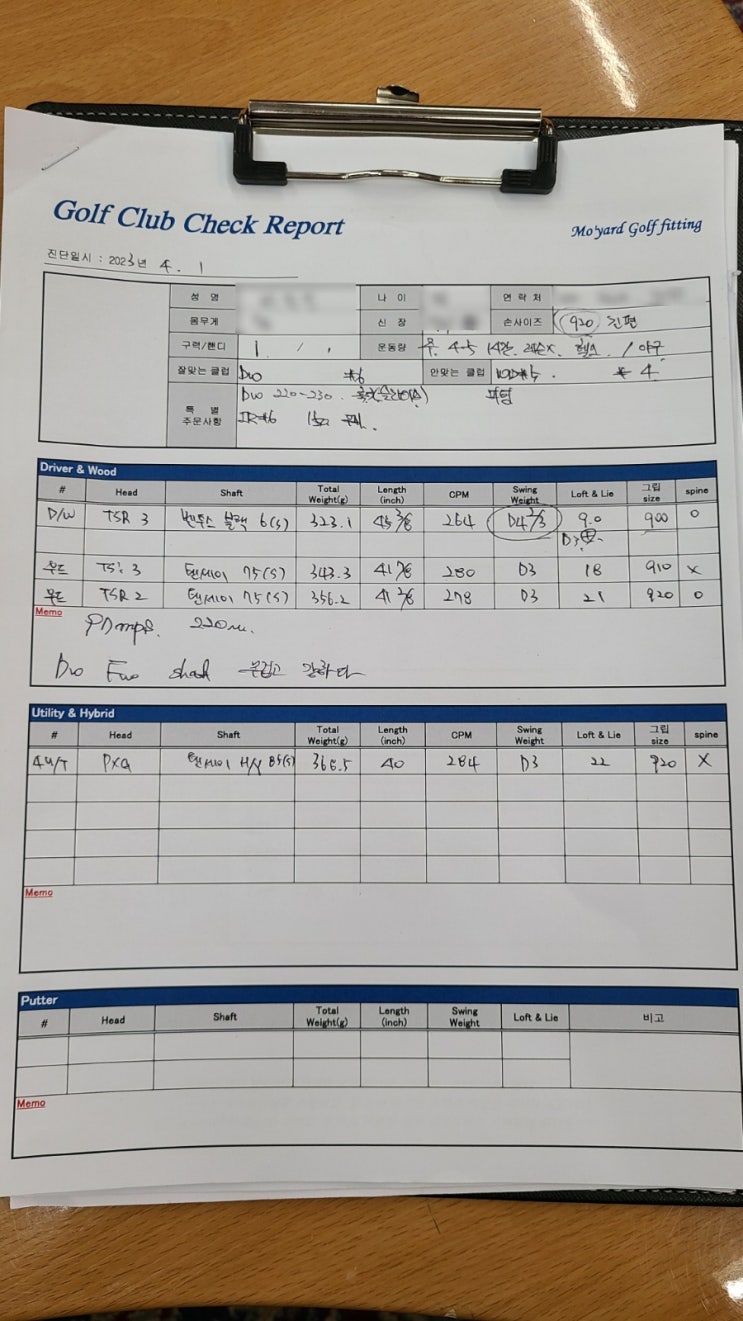 Golf Club Check Report
Mo'yard Golf fitting
진단일시 : 2023년 4. 1
성 명 나 이 연 락 처
몸무게 신 장 손사이즈 920 긴편
구력/핸디 1 / , 운동량 주 4-5 1시간. 레슨X. 헬스 / 야구
잘맞는 클럽 Dw #6 안맞는 클럽 #5. #4
특 별 주문사항 Dw 220-230.
IR#6
Driver & Wood
# Head Shaft Total Weight(g) Length (inch) CPM Swing Weight Loft & Lie 그립 size spine
D/W TSR 3 벤투스 블랙 6(S) 323.1 45 3/8 264 D4 2/3 9.0 900 O
D3
우드 TSi 3 텐세이 75(S) 343.3 41 7/8 280 D3 18 910 X
우드 TSR 2 텐세이 75(S) 356.2 41 2/8 278 D3 21 920 O
Memo
220m.
Dw Fw shaft 무겁고 강하다
Utility & Hybrid
# Head Shaft Total Weight(g) Length (inch) CPM Swing Weight Loft & Lie 그립 size spine
4U/T PXG 텐세이 H/Y 85(S) 366.5 40 284 D3 22 920 X
Memo
Putter
# Head Shaft Total Weight(g) Length (inch) Swing Weight Loft & Lie 비고
Memo